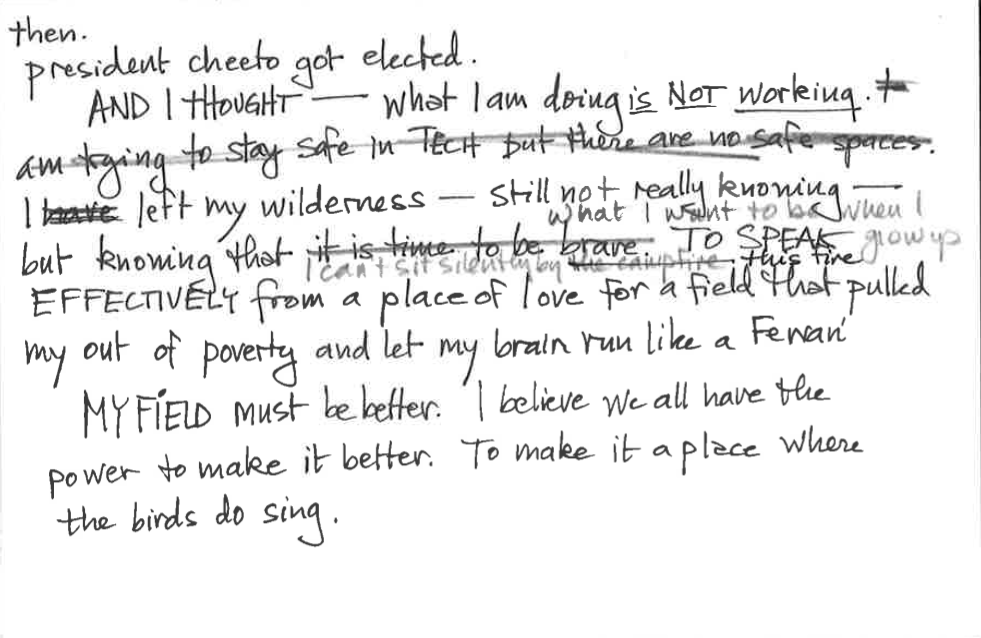 then.
president cheeto got elected.
AND I THOUGHT — what I am doing is NOT working. I
am trying to stay safe in TECH but there are no safe spaces.
I have left my wilderness — still not really knowing —
what I want to be when I
grow up
but knowing that it is time to be brave. TO SPEAK
I can't sit silently by the campfire. this fire
EFFECTIVELY from a place of love for a field that pulled
my out of poverty and let my brain run like a Ferrari
MY FIELD must be better. I believe we all have the
power to make it better. To make it a place where
the birds do sing.